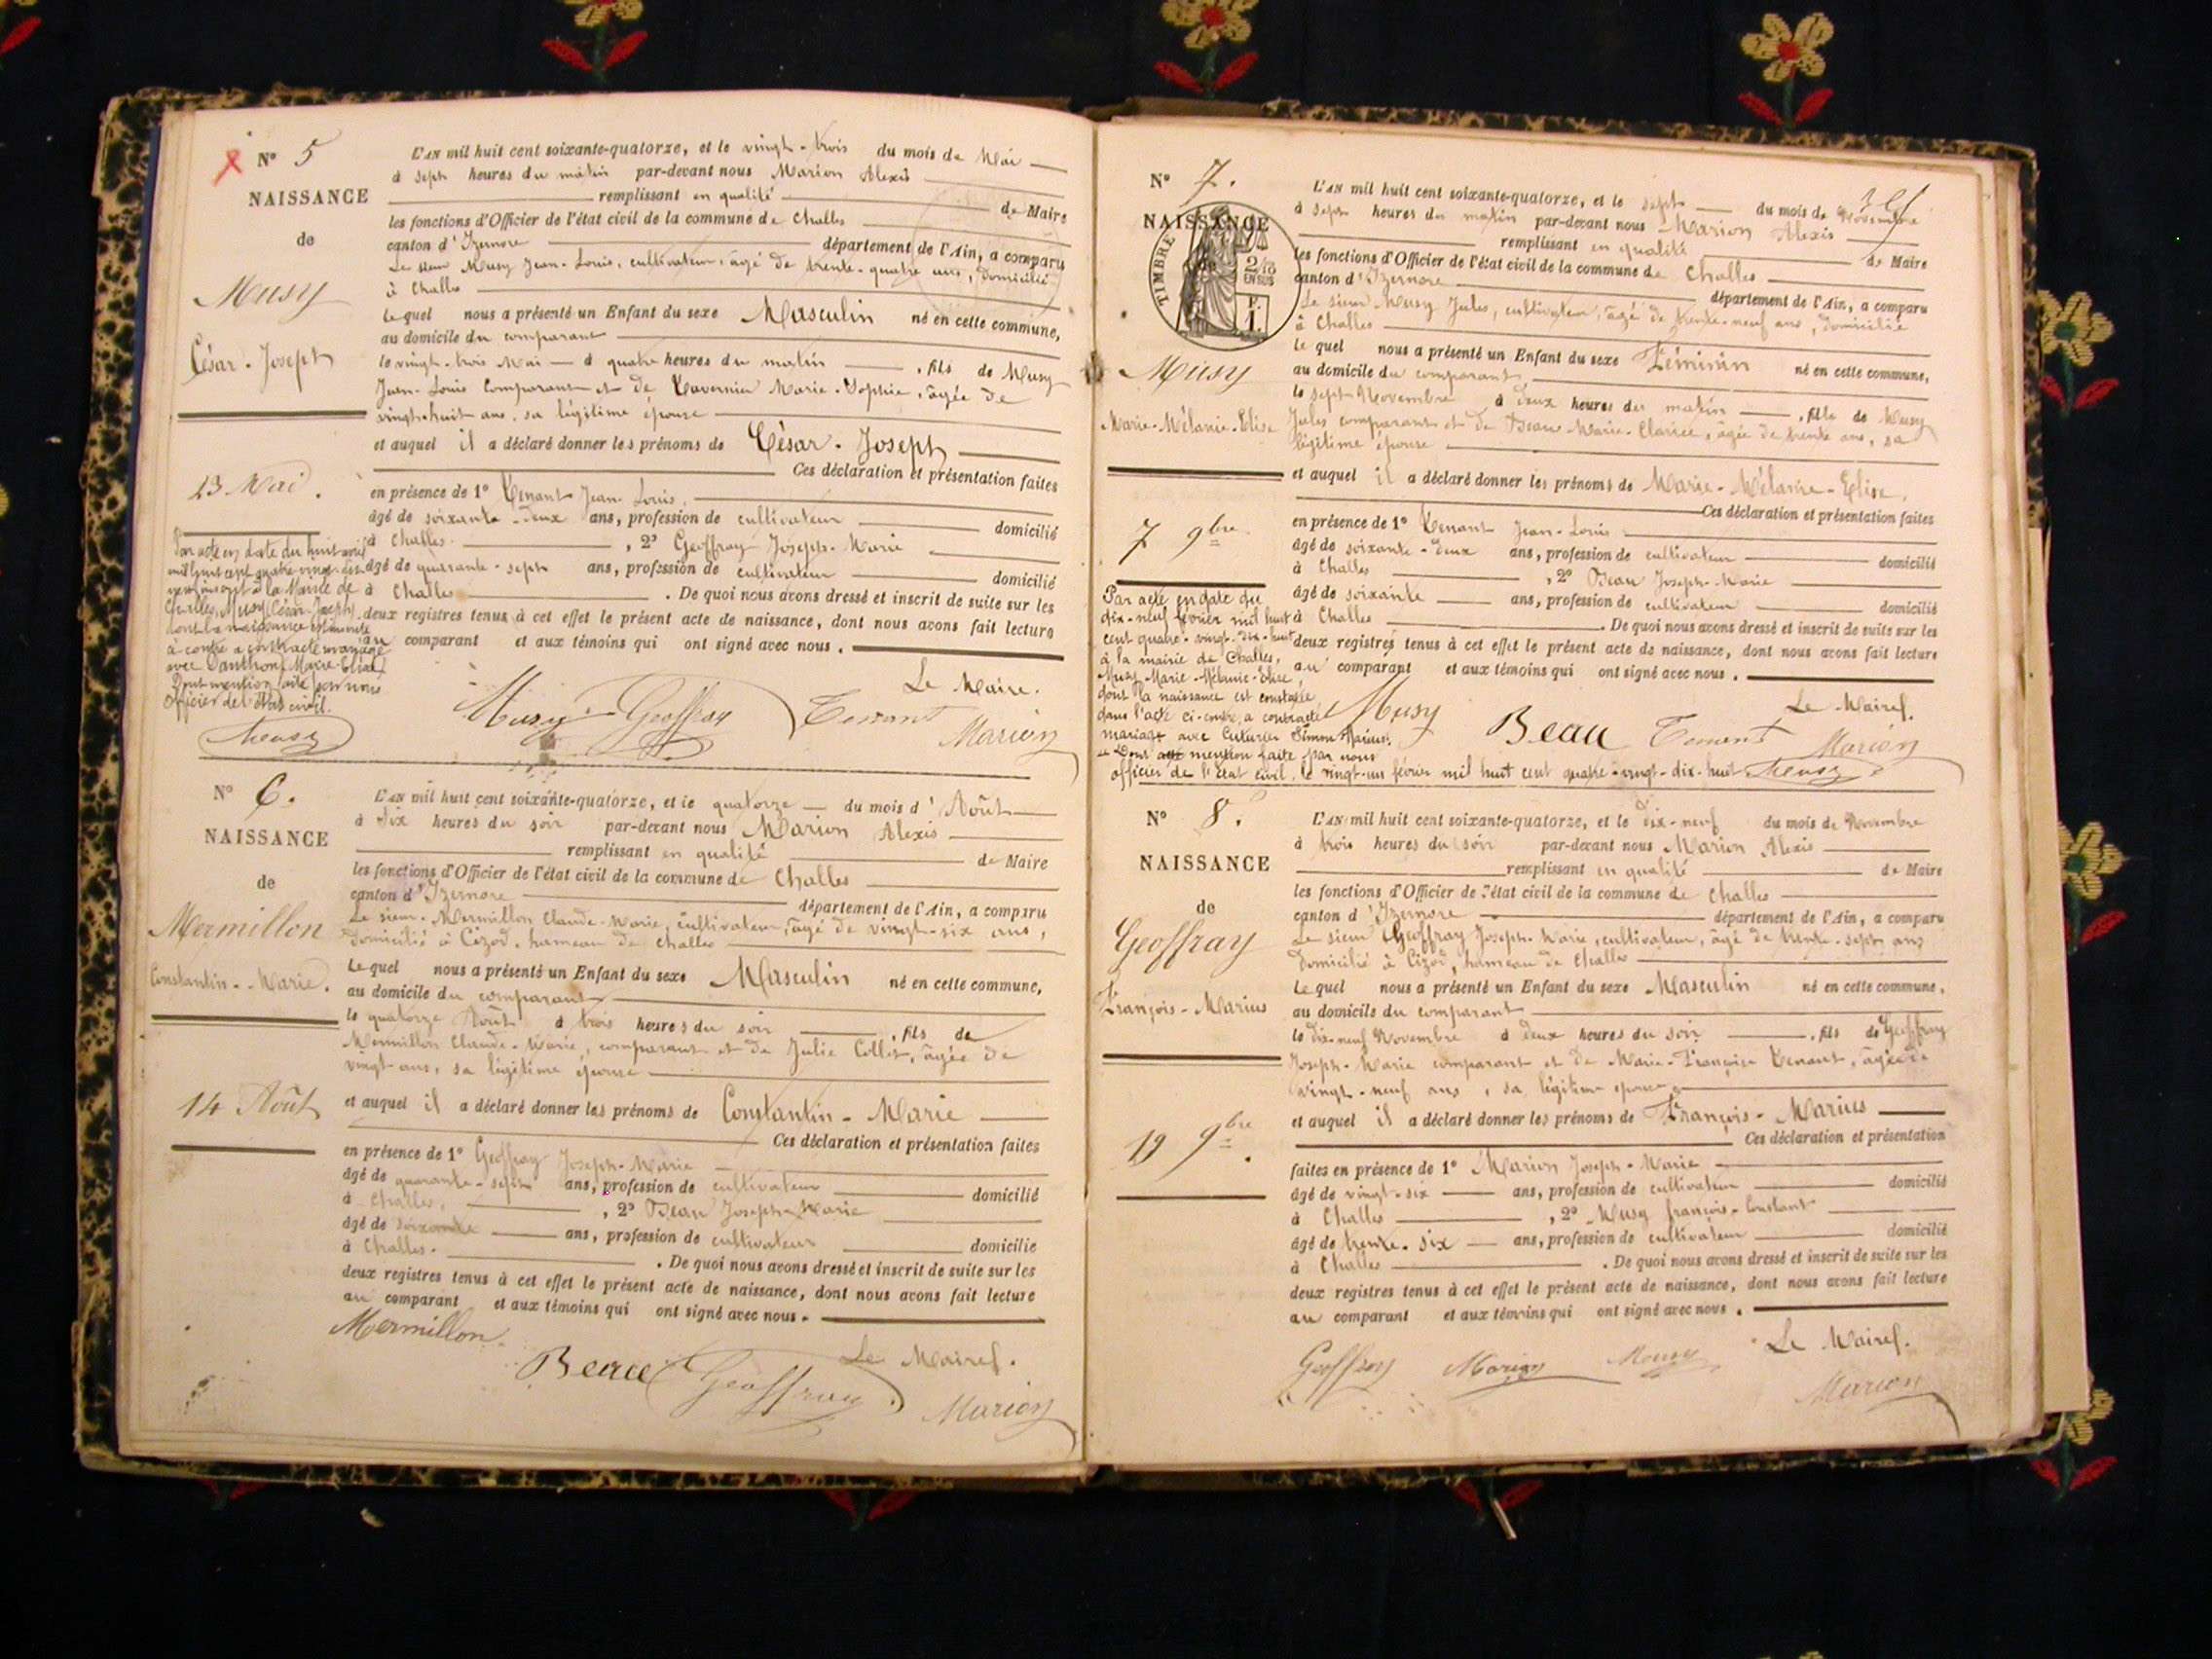 N° 5
NAISSANCE
de
Musy
César - Joseph
23 Mai.
L'AN mil huit cent soixante-quatorze, et le vingt-trois du mois de Mai
à sept heures du matin par-devant nous Marion Alexis
remplissant en qualité de Maire
les fonctions d'Officier de l'état civil de la commune de Challes
canton d'Izernore département de l'Ain, a comparu
Le sieur Musy Jean-Louis, cultivateur, âgé de trente-quatre ans, domicilié
à Challes
Lequel nous a présenté un Enfant du sexe Masculin né en cette commune,
au domicile du comparant
le vingt-trois Mai à quatre heures du matin, fils de Musy
Jean-Louis comparant et de Tavernier Marie-Sophie, âgée de
vingt-huit ans, sa légitime épouse
et auquel il a déclaré donner les prénoms de César-Joseph
Ces déclaration et présentation faites
en présence de 1° Tenant Jean-Louis,
âgé de soixante-deux ans, profession de cultivateur domicilié
à Challes, 2° Geoffray Joseph-Marie
âgé de quarante-sept ans, profession de cultivateur domicilié
à Challes. De quoi nous avons dressé et inscrit de suite sur les
deux registres tenus à cet effet le présent acte de naissance, dont nous avons fait lecture
au comparant et aux témoins qui ont signé avec nous.
Par acte en date du huit
mil huit cent quatre vingt
à la Mairie de
Challes, Musy César-Joseph
dont la naissance est
à contre a contracté mariage
avec Marie-Elisa
Dont mention faite par nous
Officier de l'état civil.
Le Maire.
Musy Geoffray Tenant Marion
N° 6.
NAISSANCE
de
Mermillon
Constantin - Marie.
14 Août
L'AN mil huit cent soixante-quatorze, et le quatorze du mois d'Août
à six heures du soir par-devant nous Marion Alexis
remplissant en qualité de Maire
les fonctions d'Officier de l'état civil de la commune de Challes
canton d'Izernore département de l'Ain, a comparu
Le sieur Mermillon Claude-Marie, cultivateur, âgé de vingt-six ans,
domicilié à Cizod, hameau de Challes
Lequel nous a présenté un Enfant du sexe Masculin né en cette commune,
au domicile du comparant
le quatorze Août à trois heures du soir, fils de
Mermillon Claude-Marie, comparant et de Julie Collet, âgée de
vingt ans, sa légitime épouse
et auquel il a déclaré donner les prénoms de Constantin-Marie
Ces déclaration et présentation faites
en présence de 1° Geoffray Joseph-Marie
âgé de quarante-sept ans, profession de cultivateur domicilié
à Challes, 2° Beau Joseph-Marie
âgé de soixante ans, profession de cultivateur domicilié
à Challes. De quoi nous avons dressé et inscrit de suite sur les
deux registres tenus à cet effet le présent acte de naissance, dont nous avons fait lecture
au comparant et aux témoins qui ont signé avec nous.
Mermillon
Le Maire.
Beau Geoffray Marion
N° 7.
NAISSANCE
TIMBRE
2/10
EN SUS
F.
1.
Musy
Marie-Mélanie-Elise
7 9bre
L'AN mil huit cent soixante-quatorze, et le sept du mois de Novembre
à sept heures du matin par-devant nous Marion Alexis
remplissant en qualité de Maire
les fonctions d'Officier de l'état civil de la commune de Challes
canton d'Izernore département de l'Ain, a comparu
Le sieur Musy Jules, cultivateur, âgé de trente-neuf ans, domicilié
à Challes
Lequel nous a présenté un Enfant du sexe Féminin né en cette commune,
au domicile du comparant
le sept Novembre à deux heures du matin, fille de Musy
Jules comparant et de Beau Marie-Clarice, âgée de trente ans, sa
légitime épouse
et auquel il a déclaré donner les prénoms de Marie-Mélanie-Elise,
Ces déclaration et présentation faites
en présence de 1° Tenant Jean-Louis
âgé de soixante-deux ans, profession de cultivateur domicilié
à Challes, 2° Beau Joseph-Marie
âgé de soixante ans, profession de cultivateur domicilié
à Challes. De quoi nous avons dressé et inscrit de suite sur les
deux registres tenus à cet effet le présent acte de naissance, dont nous avons fait lecture
au comparant et aux témoins qui ont signé avec nous.
Par acte en date du
dix-neuf février mil huit
cent quatre-vingt-dix-huit
à la mairie de Challes,
Musy Marie-Mélanie-Elise,
dont la naissance est constatée
dans l'acte ci-contre, a contracté
mariage avec Simon
Dont mention faite par nous
officier de l'état civil, le vingt-un février mil huit cent quatre-vingt-dix-huit
Le Maire.
Musy Beau Tenant Marion
N° 8.
NAISSANCE
de
Geoffray
François - Marius
19 9bre.
L'AN mil huit cent soixante-quatorze, et le dix-neuf du mois de Novembre
à trois heures du soir par-devant nous Marion Alexis
remplissant en qualité de Maire
les fonctions d'Officier de l'état civil de la commune de Challes
canton d'Izernore département de l'Ain, a comparu
Le sieur Geoffray Joseph-Marie, cultivateur, âgé de trente-sept ans
domicilié à Cizod, hameau de Challes
Lequel nous a présenté un Enfant du sexe Masculin né en cette commune,
au domicile du comparant
le dix-neuf Novembre à deux heures du soir, fils de Geoffray
Joseph-Marie comparant et de Marie-Françoise Tenant, âgée de
vingt-neuf ans, sa légitime épouse,
et auquel il a déclaré donner les prénoms de François-Marius
Ces déclaration et présentation
faites en présence de 1° Marion Joseph-Marie
âgé de vingt-six ans, profession de cultivateur domicilié
à Challes, 2° Musy françois-Constant
âgé de trente-six ans, profession de cultivateur domicilié
à Challes. De quoi nous avons dressé et inscrit de suite sur les
deux registres tenus à cet effet le présent acte de naissance, dont nous avons fait lecture
au comparant et aux témoins qui ont signé avec nous.
Le Maire.
Geoffray Marion Mousy Marion